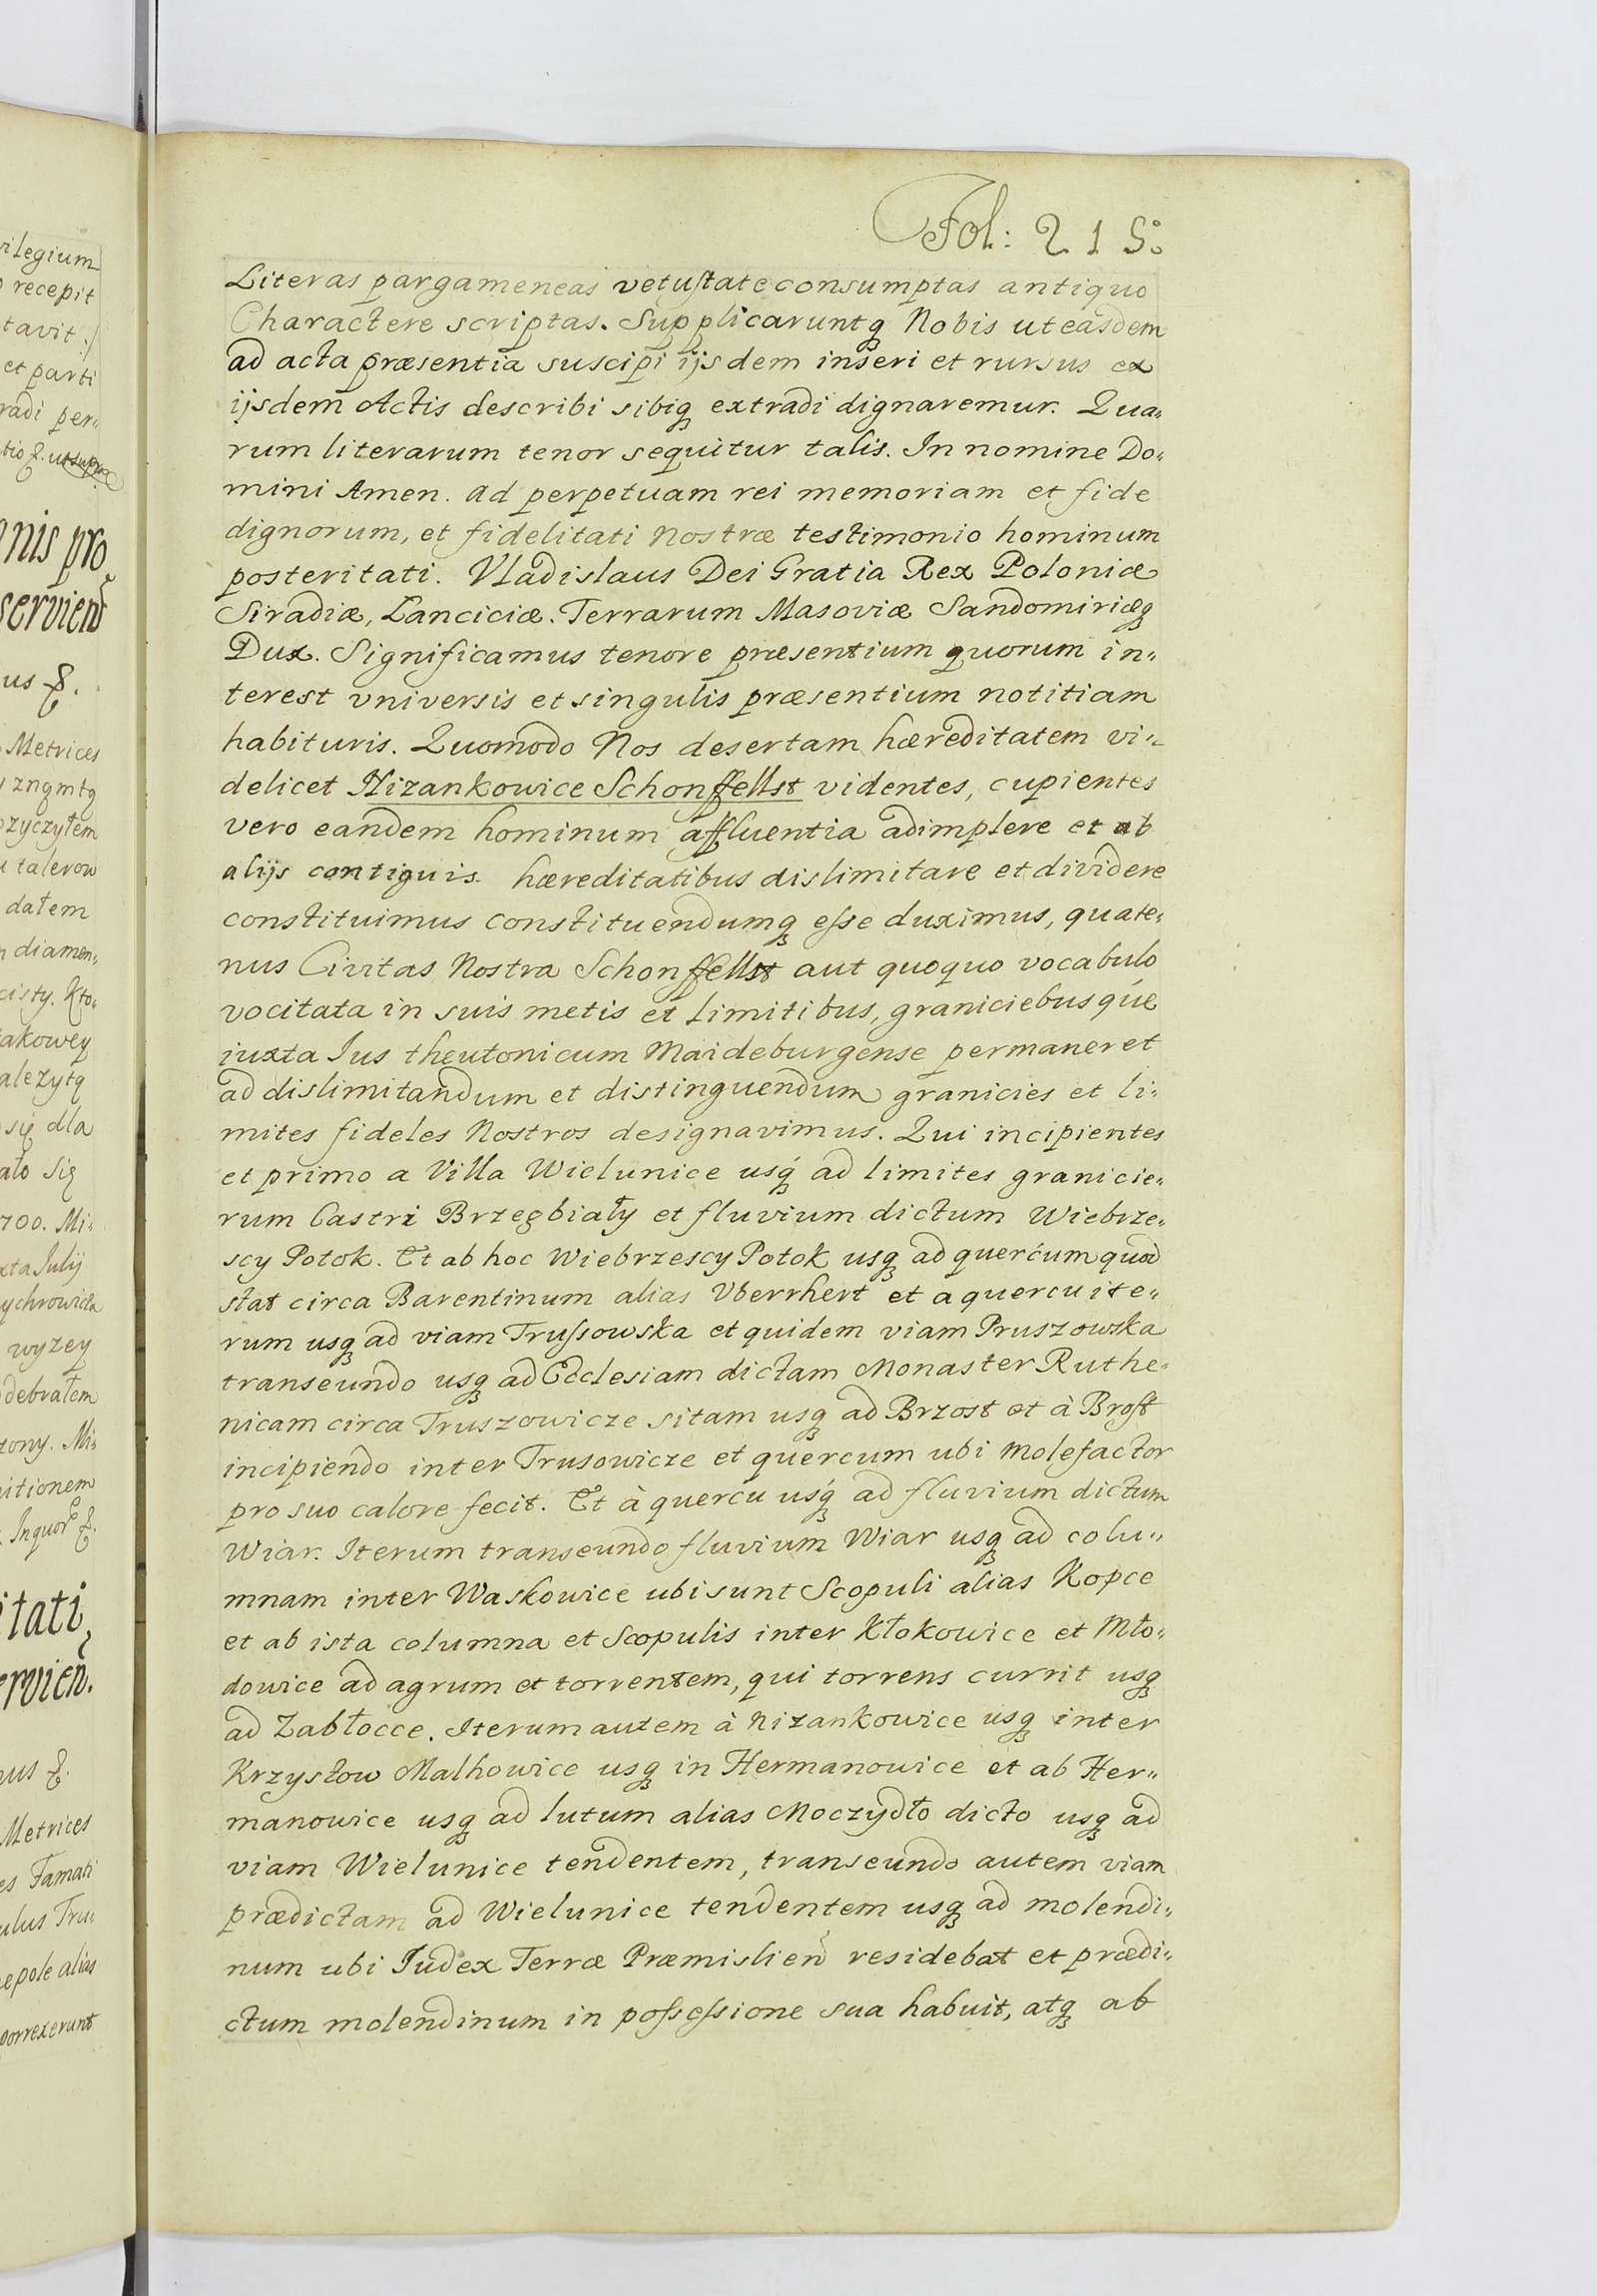 Fol: 215.
Literas pargameneas vetustate consumptas antiquo
Charactere scriptas. Supplicaruntq Nobis ut easdem
ad acta præsentia suscipi ijsdem inseri et rursus ex
ijsdem Actis describi sibiq extradi dignaremur. Qua„
rum literarum tenor sequitur talis. In nomine Do„
mini Amen. Ad perpetuam rei memoriam et fide
dignorum, et fidelitati Nostræ testimonio hominum
posteritati. Vladislaus Dei Gratia Rex Poloniæ
Siradiæ, Lanciciæ. Terrarum Masoviæ Sandomiriæq
Dux. Significamus tenore præsentium quorum in„
terest vniversis et singulis præsentium notitiam
habituris. Quomodo Nos desertam hæreditatem vi„
delicet Nizankowice Schonffellst videntes, cupientes
vero eandem hominum affluentia adimplere et ab
alijs contiguis hæreditatibus dislimitare et dividere
constituimus constituendumq esse duximus, quate„
nus Civitas Nostra Schonffellst aut quoquo vocabulo
vocitata in suis metis et limitibus, graniciebusque
iuxta Ius theutonicum Maideburgense permaneret
ad dislimitandum et distinguendum granicies et li„
mites fideles Nostros designavimus. Qui incipientes
et primo a Villa Wielunice usq ad limites granicie„
rum Castri Brzegbiały et fluvium dictum Wiebrze„
scy Potok. Et ab hoc Wiebrzescy Potok usq ad quercum quod
stat circa Barentinum alias Vberrhert et a quercu ite„
rum usq ad viam Trussowska et quidem viam Pruszowska
transeundo usq ad Ecclesiam dictam Monaster Ruthe„
nicam circa Truszowicze sitam usq ad Brzost et à Brost
incipiendo inter Trusowicze et quercum ubi molefactor
pro suo calore fecit. Et à quercu usq ad fluvium dictum
Wiar. Iterum transeundo fluvium Wiar usq ad colu„
mnam inter Waskowice ubi sunt Scopuli alias Kopce
et ab ista columna et Scopulis inter Kłokowice et Mło„
dowice ad agrum et torrentem, qui torrens currit usq
ad Zabłocce. Iterum autem à Nizankowice usq inter
Krzysłow Malhowice usq in Hermanowice et ab Her„
manowice usq ad lutum alias Moczydło dicto usq ad
viam Wielunice tendentem, transeundo autem viam
prædictam ad Wielunice tendentem usq ad molendi„
num ubi Iudex Terræ Præmislien residebat et prædi„
ctum molendinum in possessione sua habuit, atq ab